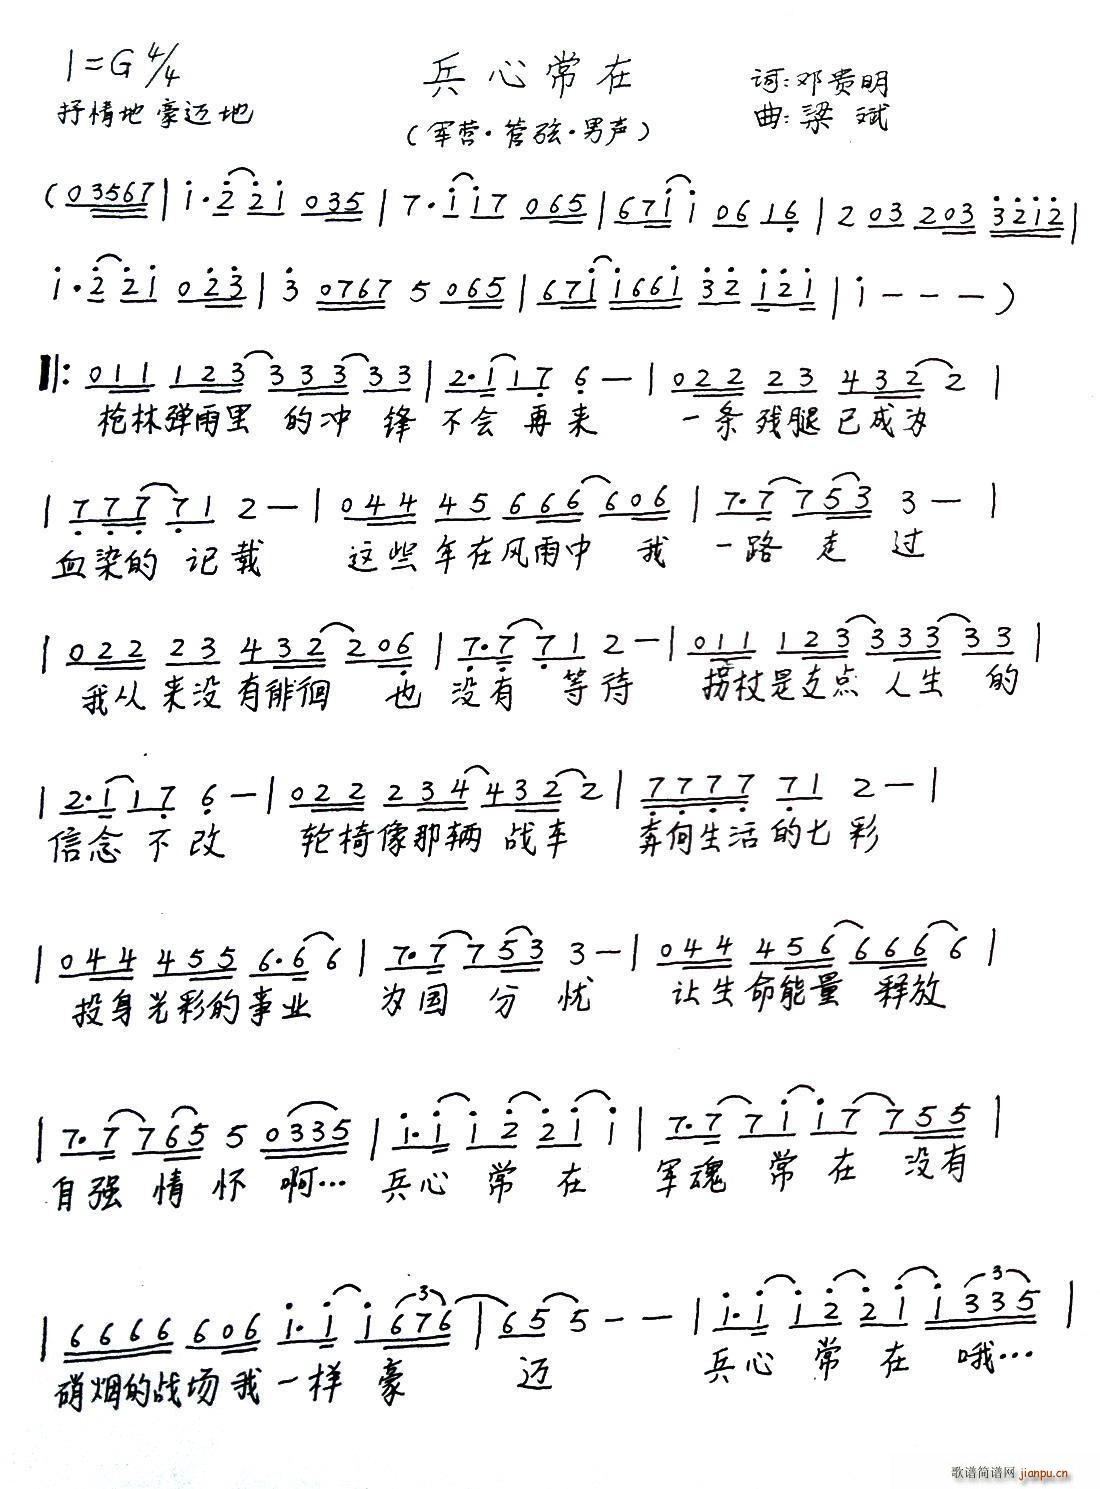 1=G 4/4
兵心常在
词:邓贵明
抒情地 豪迈地
(军营·管弦·男声)
曲:梁斌
(03567|i·22i 035|7·ii7 065|67ii 0616|2 03 203 32i2|
i·22i 023|3 0767 5 065|67ii66i 32 i2i|i---)
‖:011 123 333333|2·117 6-|022 23 4322|
枪林弹雨里 的冲 锋 不会 再来 一条 残腿已成为
|77771 2-|044 45 666606|7·7753 3-|
血染的 记载 这些 年在风雨中 我 一路 走 过
|022 23 432206|7·771 2-|011 123 333 33|
我从 来没有徘徊 也 没有 等待 拐杖是支点 人生 的
|2·117 6-|022 2344322|7777 71 2-|
信念 不改 轮椅像那辆 战车 奔向生活的七彩
|044 455 6·66|7·7753 3-|044 456 6666|
投身光彩的事业 为国 分 忧 让生命能量 释放
|7·7765 5 0335|i·ii22ii|7·77ii7755|
自强 情 怀 啊… 兵心 常 在 军魂 常 在 没有
|6666 606 i·ii676|655--|i·ii22ii335|
硝烟的战场我一样 豪 迈 兵心 常 在 哦…
歌谱简谱网 jianpu.cn